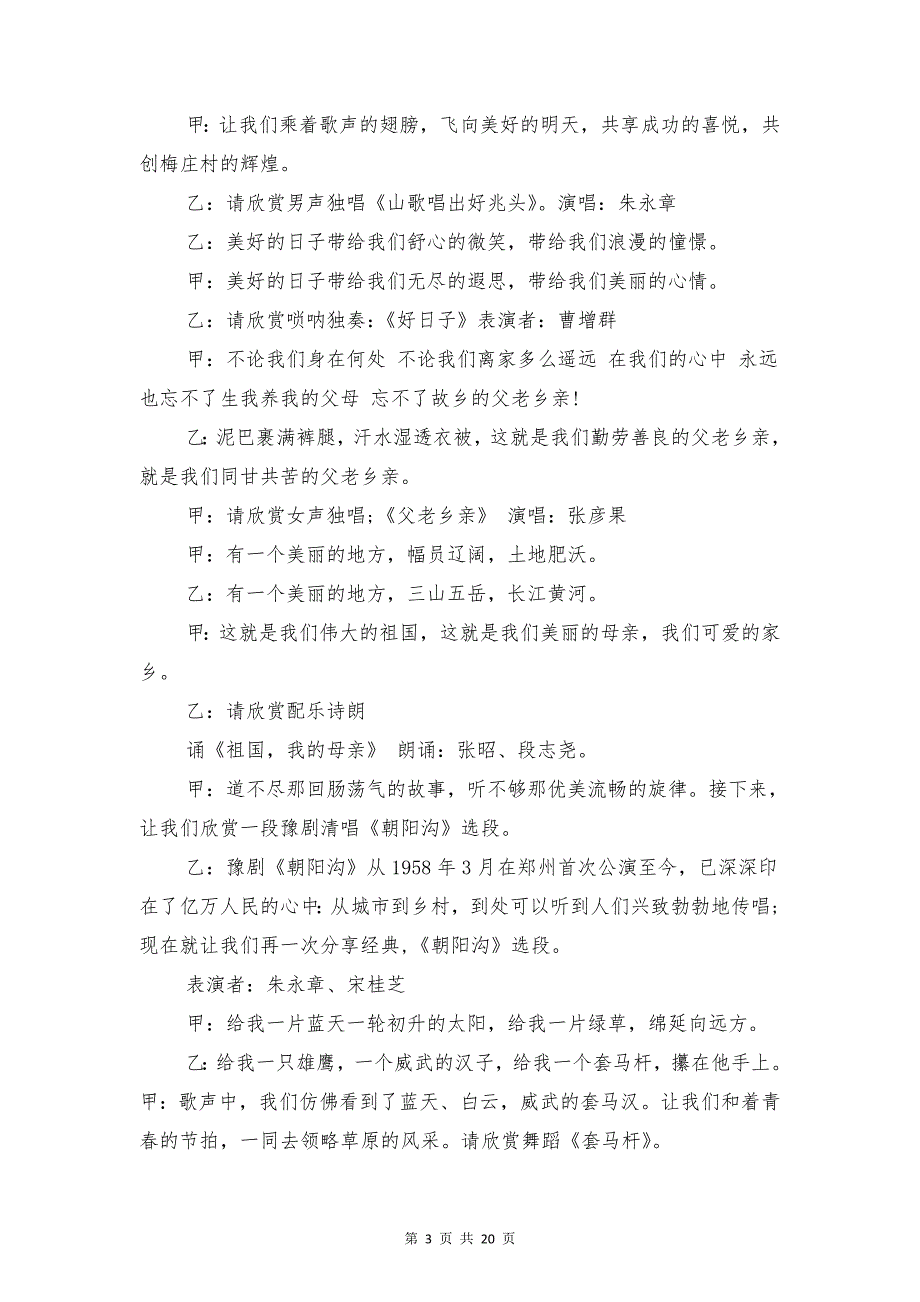 甲：让我们乘着歌声的翅膀，飞向美好的明天，共享成功的喜悦，共
创梅庄村的辉煌。
乙：请欣赏男声独唱《山歌唱出好兆头》。演唱：朱永章
乙：美好的日子带给我们舒心的微笑，带给我们浪漫的憧憬。
甲：美好的日子带给我们无尽的遐思，带给我们美丽的心情。
乙：请欣赏唢呐独奏：《好日子》表演者：曹增群
甲：不论我们身在何处 不论我们离家多么遥远 在我们的心中 永远
也忘不了生我养我的父母 忘不了故乡的父老乡亲!
乙：泥巴裹满裤腿，汗水湿透衣被，这就是我们勤劳善良的父老乡亲，
就是我们同甘共苦的父老乡亲。
甲：请欣赏女声独唱;《父老乡亲》 演唱：张彦果
甲：有一个美丽的地方，幅员辽阔，土地肥沃。
乙：有一个美丽的地方，三山五岳，长江黄河。
甲：这就是我们伟大的祖国，这就是我们美丽的母亲，我们可爱的家
乡。
乙：请欣赏配乐诗朗
诵《祖国，我的母亲》 朗诵：张昭、段志尧。
甲：道不尽那回肠荡气的故事，听不够那优美流畅的旋律。接下来，
让我们欣赏一段豫剧清唱《朝阳沟》选段。
乙：豫剧《朝阳沟》从 1958 年 3 月在郑州首次公演至今，已深深印
在了亿万人民的心中：从城市到乡村，到处可以听到人们兴致勃勃地传唱;
现在就让我们再一次分享经典,《朝阳沟》选段。
表演者：朱永章、宋桂芝
甲：给我一片蓝天一轮初升的太阳，给我一片绿草，绵延向远方。
乙：给我一只雄鹰，一个威武的汉子，给我一个套马杆，攥在他手上。
甲：歌声中，我们仿佛看到了蓝天、白云，威武的套马汉。让我们和着青
春的节拍，一同去领略草原的风采。请欣赏舞蹈《套马杆》。
第 3 页 共 20 页